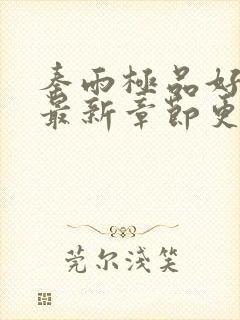 秦雨極品好
最新章節更
莞尔浅笑